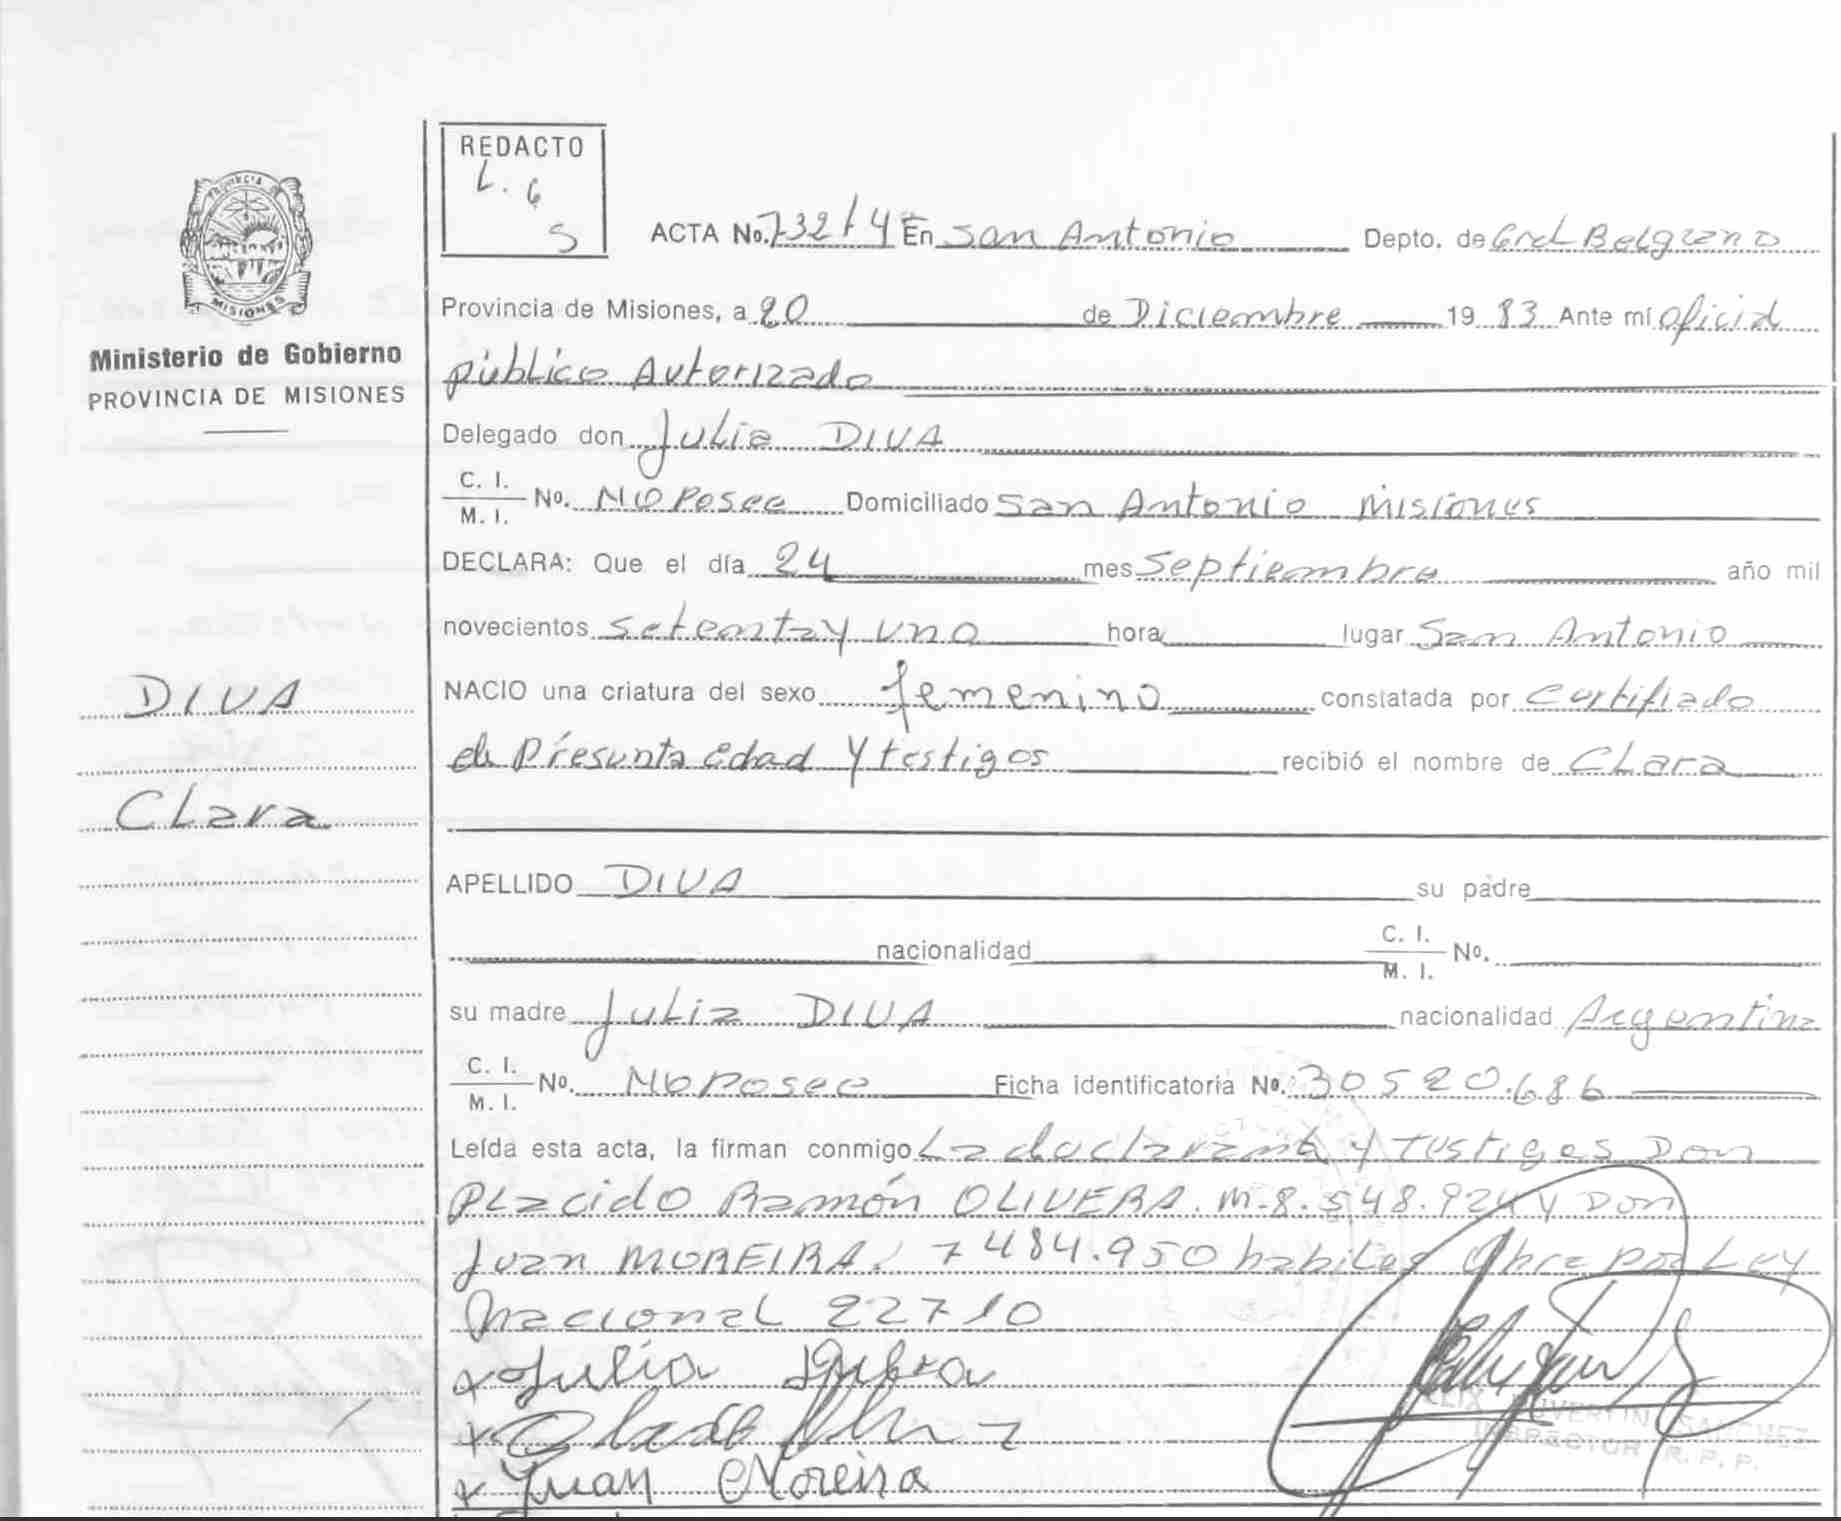 REDACTO
L. G
S
PROVINCIA DE
MISIONES
Ministerio de Gobierno
PROVINCIA DE MISIONES
ACTA No. 732/4 En San Antonio Depto. de Gral Belgrano
Provincia de Misiones, a 20 de Diciembre 1983 Ante mí oficial
público Autorizado
Delegado don Julia DIVA
C. I.
M. I. No. No Posee Domiciliado San Antonio Misiones
DECLARA: Que el día 24 mes Septiembre año mil
novecientos setenta y uno hora lugar San Antonio
NACIO una criatura del sexo femenino constatada por Certifiado
de Presunta edad y testigos recibió el nombre de CLara
DIVA
CLara
APELLIDO DIVA su padre
nacionalidad C. I.
M. I. No.
su madre Julia DIVA nacionalidad Argentina
C. I.
M. I. No. No Posee Ficha identificatoria No. 30520.686
Leída esta acta, la firman conmigo La declarante y Testigos Don
PLacido Ramón OLIVERA. M-8.548.924 y Don
Juan MOREIRA. 7484.950 habiles Obra por Ley
Nacional 22710
x Julia
x
x Juan Moreira
SANCHEZ
INSPECTOR R. P. P.